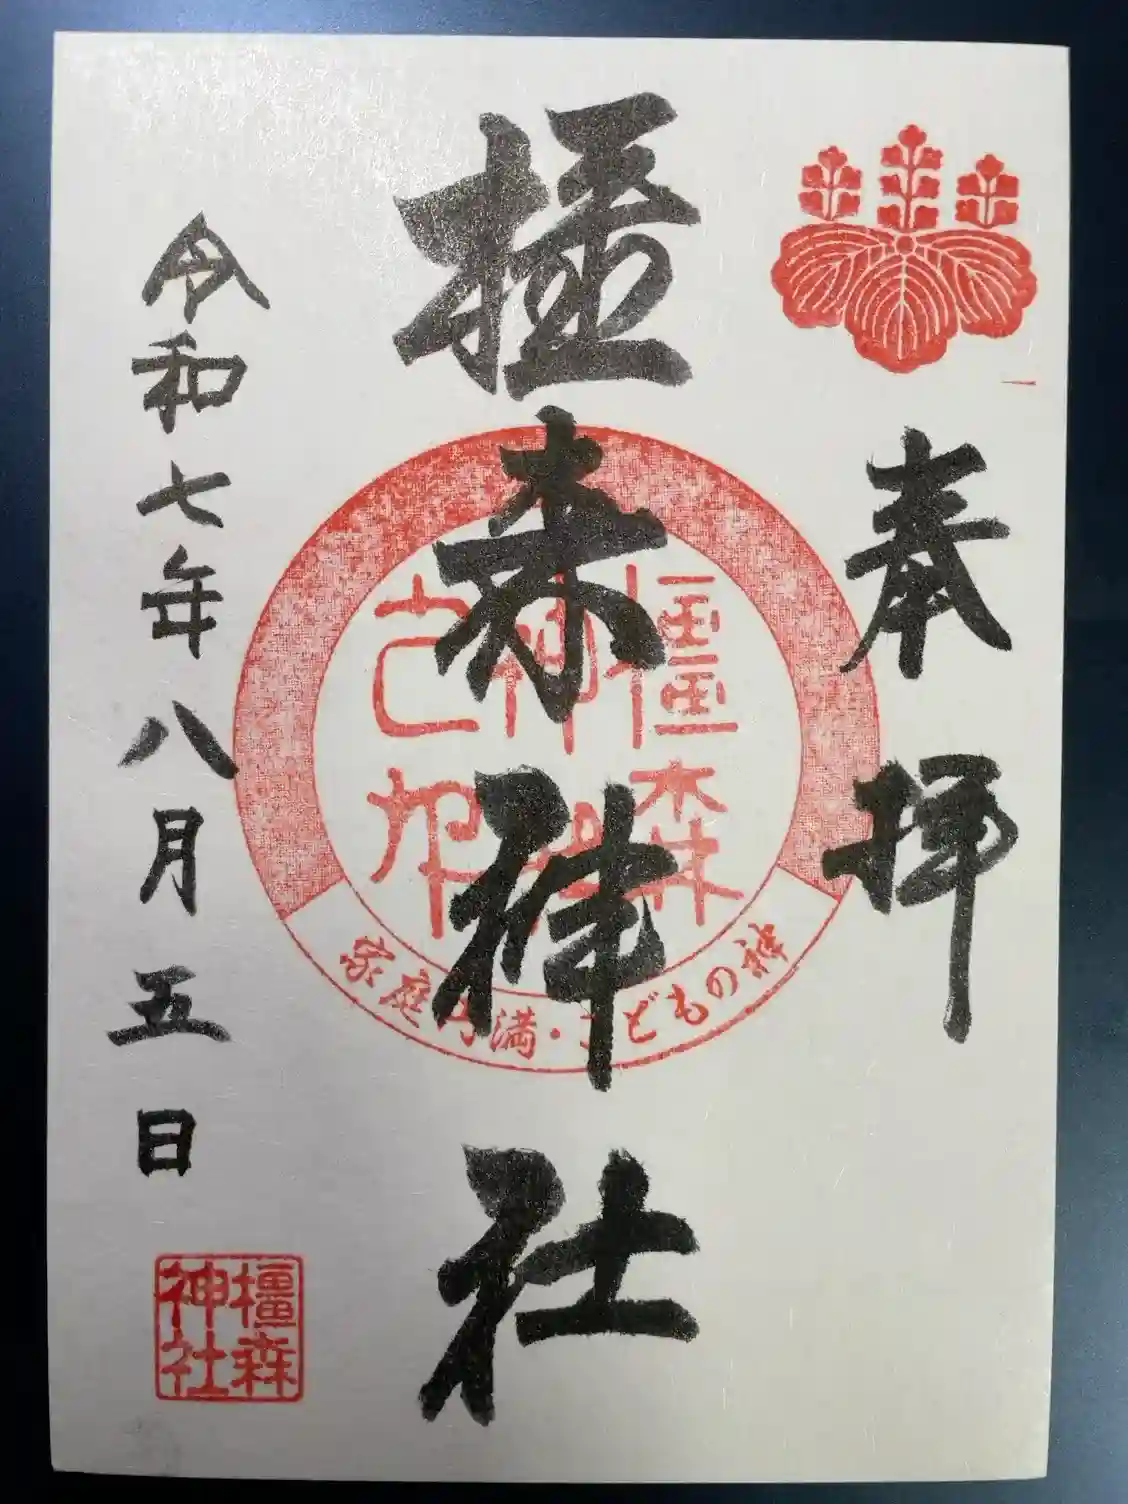 奉拝
橿森神社
橿森
神社
之印
家庭円満・こどもの神
令和七年八月五日
橿森
神社